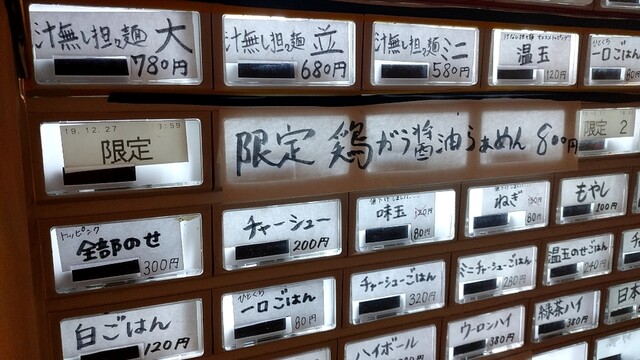 汁無し担々麺 大
780円
汁無し担々麺 並
680円
汁無し担々麺 ミニ
580円
温玉
120円
ひとくち
一口ごはん
80円
19.12.27
限定
限定 鶏ガラ醤油らぁめん 800円
限定 2
トッピング
全部のせ
300円
チャーシュー
200円
味玉
120円
80円
ねぎ
80円
もやし
100円
白ごはん
120円
ひとくち
一口ごはん
80円
チャーシューごはん
320円
ミニチャーシューごはん
280円
温玉のせごはん
240円
ハイボール
380円
ウーロンハイ
380円
緑茶ハイ
380円
日本